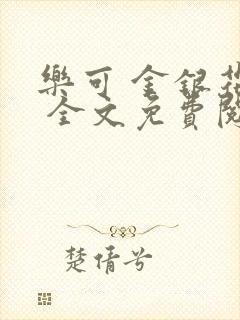 樂可 金銀花
全文免費閱
楚倩兮